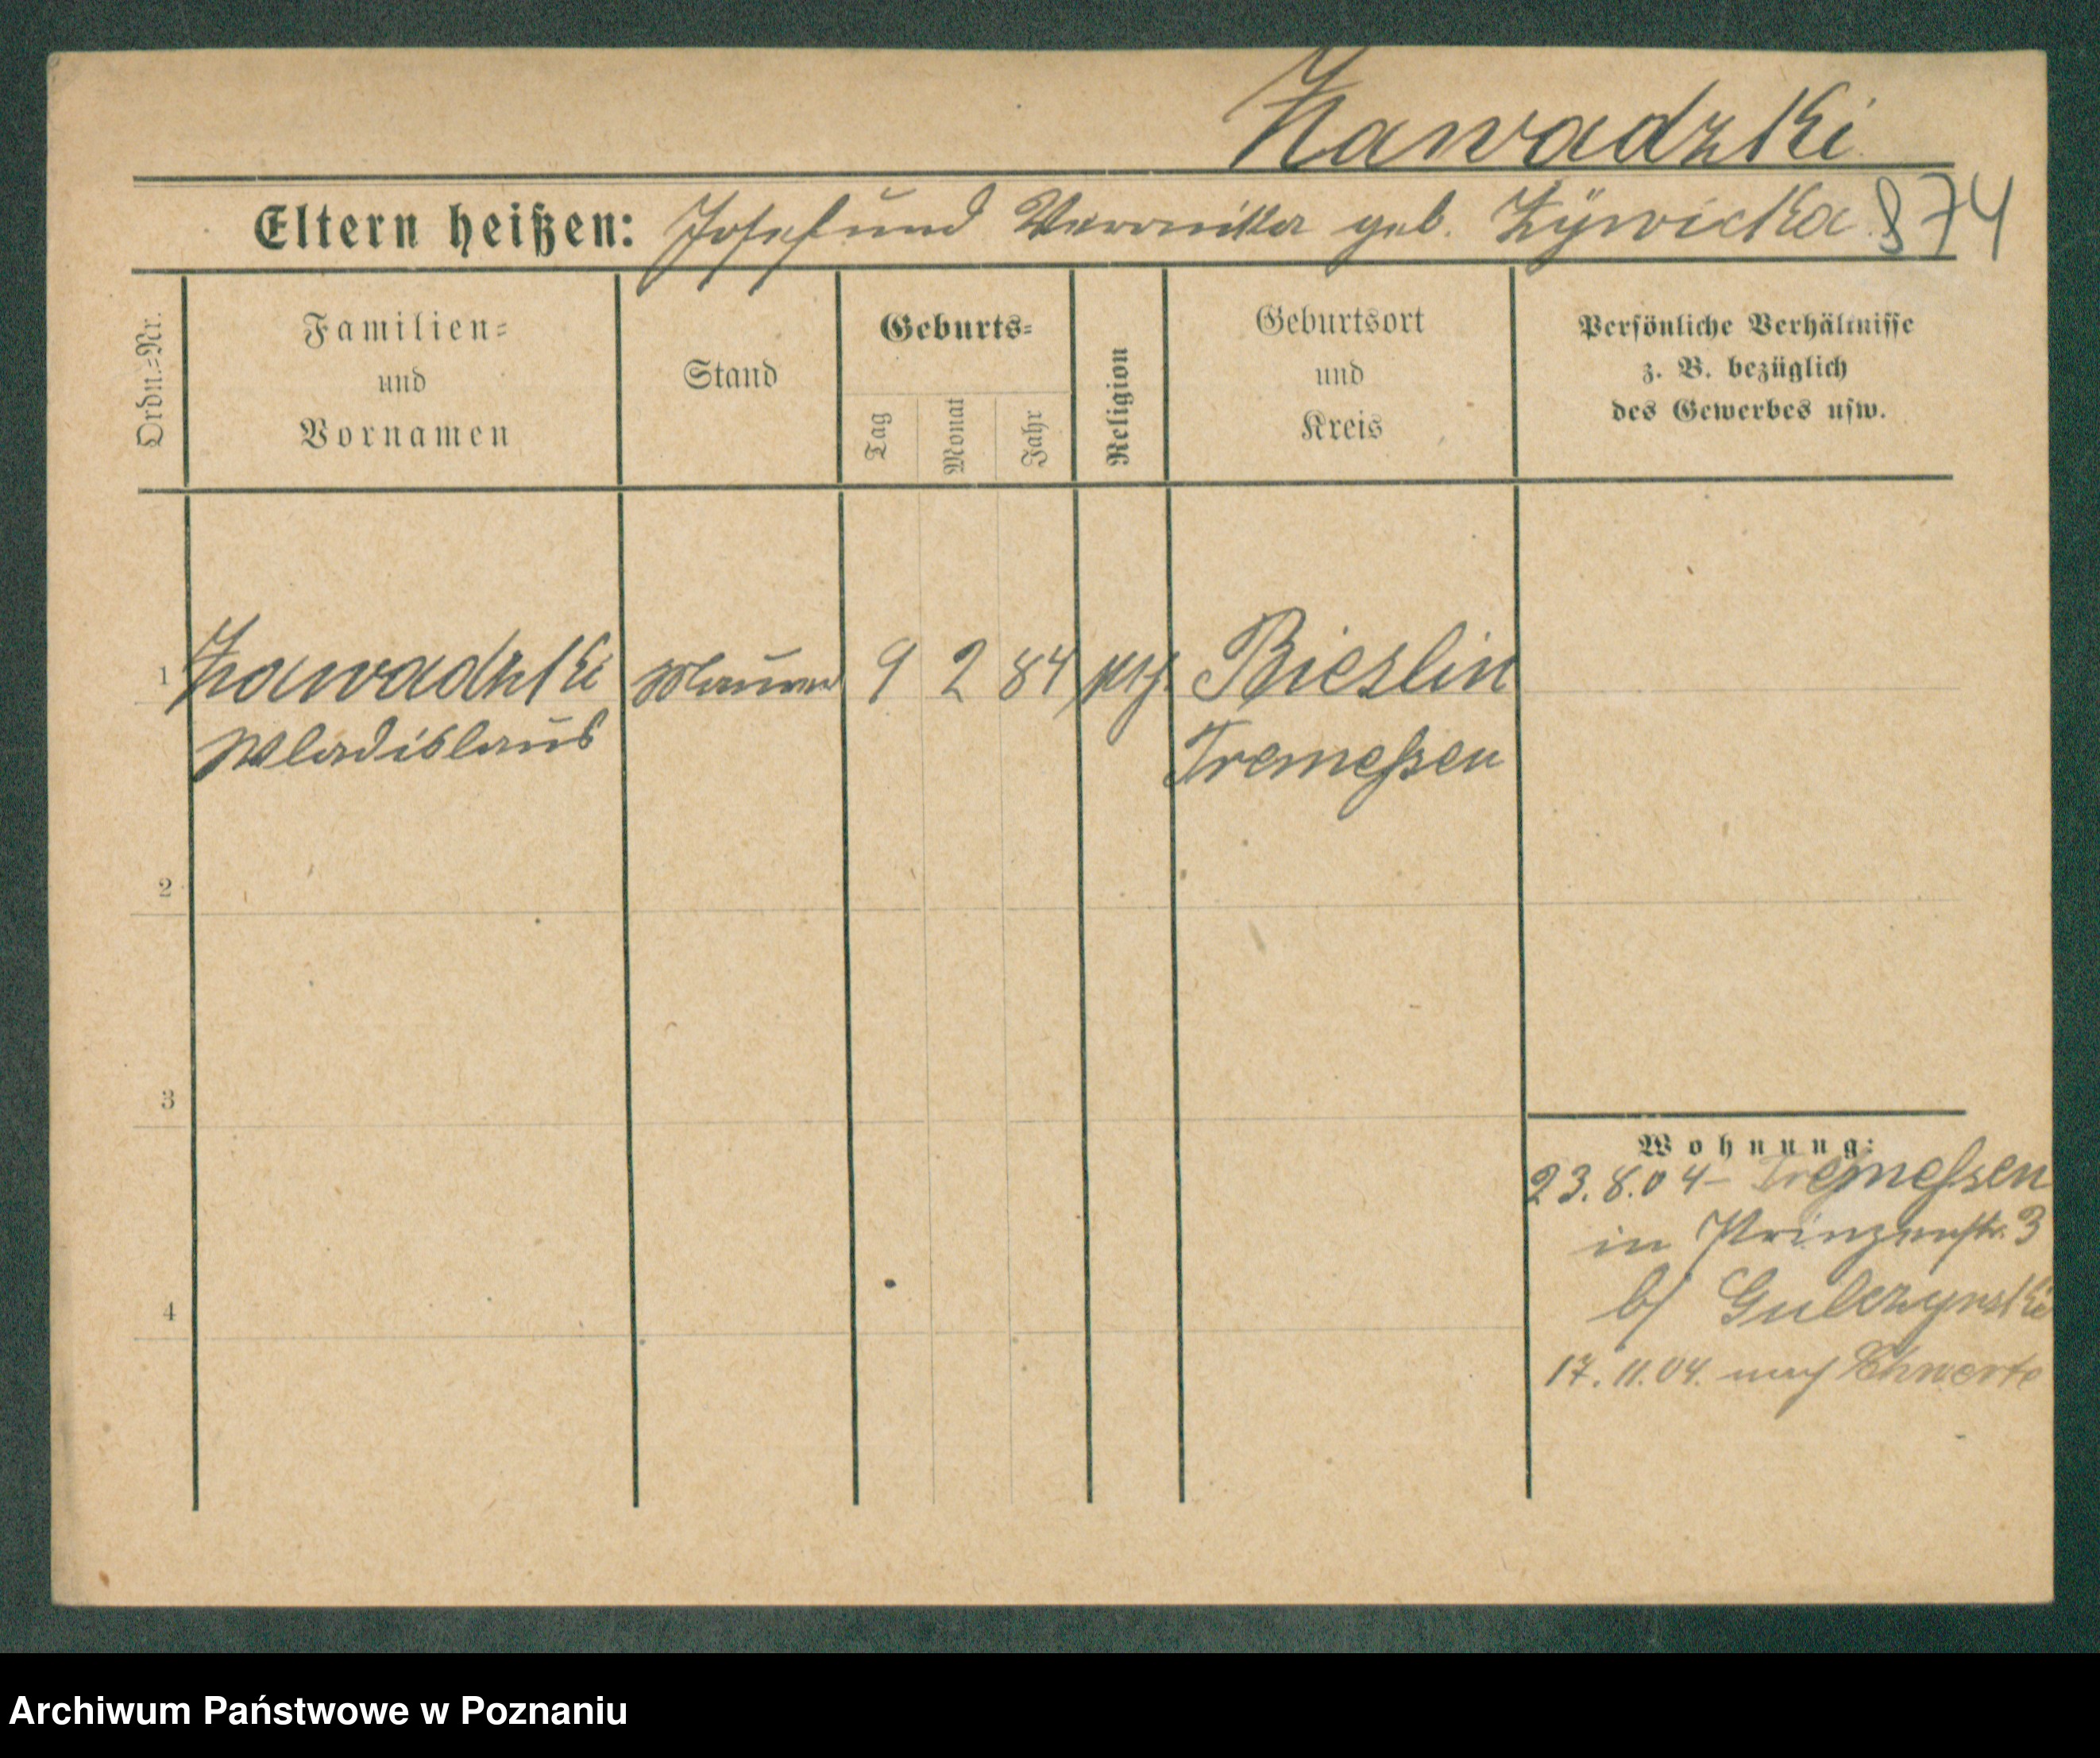 Zawadzki
Eltern heißen: Josef und Veronika geb. Zÿwicka 874
Ordn.=Nr.
Familien=
und
Vornamen
Stand
Geburts=
Tag
Monat
Jahr
Religion
Geburtsort
und
Kreis
Persönliche Verhältnisse
z. B. bezüglich
des Gewerbes usw.
1 Zawadzki Maurer 9 2 84 Bieslin
Wladislaus Tremeßen
2
3
4
Wohnung:
23.8.04 – Tremeßen
in Prinzenstr. 3
b/ Gulczynski
17.11.04. nach
Archiwum Państwowe w Poznaniu